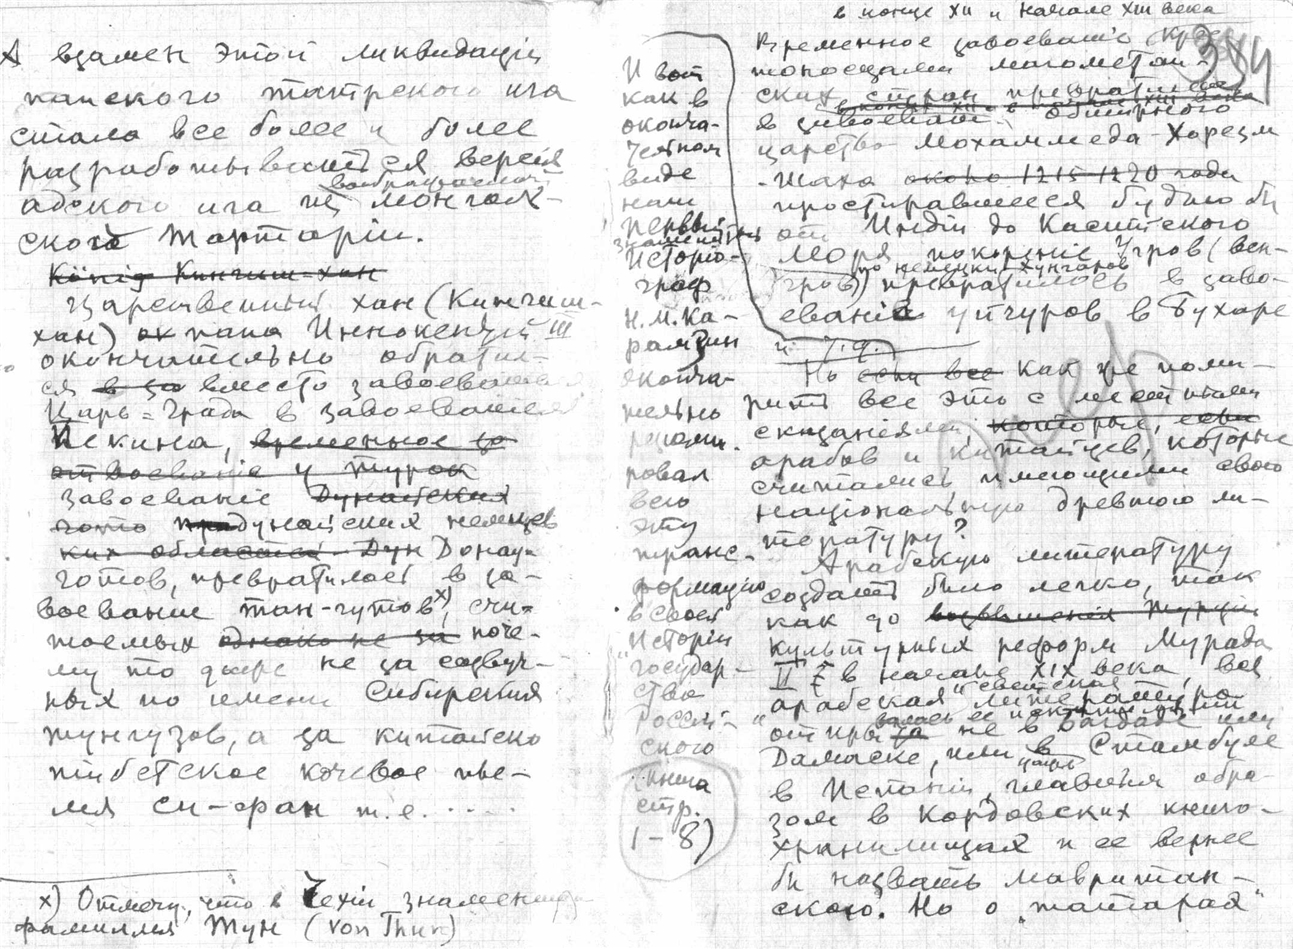 А взамен этой ликвидаціи
папского татрского ига
стала все более и более
разрабатываться версія
воображаемой
адского ига из монголь-
ской Тартаріи.
König Кингиш-хан
Царственный хан (Кингиш-
хан) папа Иннокентий III
окончательно обратил-
ся в за вместо завоеванія
Царь-града в завоеваніе
Пекина, временное за
отвоеваніе у турок
завоеваніе Дунайских
гото дунайских немецев
ких областей Дун Донау-
готов, превратилось в за-
воевание тан-гутов x), счи-
таемых однако не за поче-
му то даже не за созвуч-
ных по имени Сибирских
тунгузов, а за китайско
тибетское кочевое пле-
мя си-фан т.е. ....
x) Отмечу, что в Чехіи знаменита
фамилия Тун (von Thun)
И вот
как в
оконча-
тельном
виде
наш
первый
знаменитый
исторіо-
граф
Н.М. Ка-
рамзин
оконча-
тельно
резюми-
ровал
всю
эту
транс-
формацію
в своей
"Исторіи
государ-
ства
Россій-
ского"
(книга
стр.
1-8)
в конце XII и начале XIII века
344
Временное завоеваніе крес-
тоносцами магометан-
ских стран превратилось
в конце XII и начале XIII века
в завоеваніе обширного
царства Мохаммеда-Харезм
-шаха около 1215-1220 года
простиравшееся будто бы
от Индіи до Каспійского
моря покореніе Угров (вен-
по немецки хунгаров
гров) превратилось в заво-
еваніе уйгуров в Бухаре
и т.д.
Но если все как же поми-
рить все это с местными
сказаніями которые, если
арабов и китайцев, которые
считались имеющими свою
національную древнюю ли-
тературу?
Арабскую литературу
создать было легко, так
как до возвышенія Турціи
культурных реформ Мурада
II в начале XIX века, вся
арабская "светская
литература
от не в Багдаде или
Дамаске, или в Стамбуле
в Испаніи, главным обра-
зом в Кордовских книго-
хранилищах и ее вернее
бы назвать мавритан-
ской. Но о "татарах"